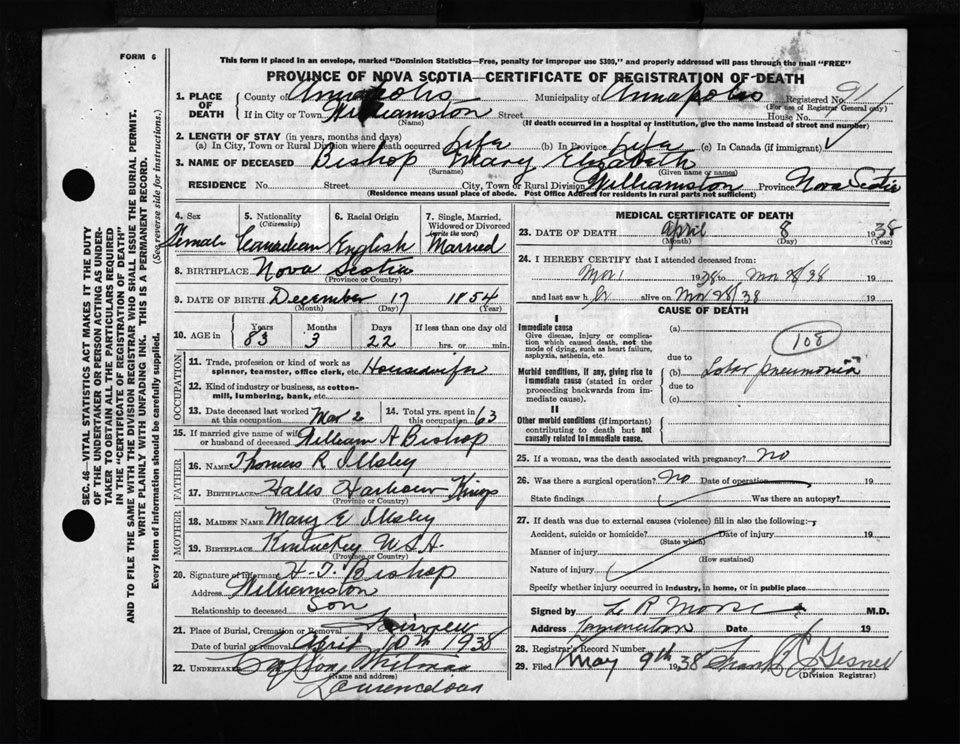 FORM 6
This form if placed in an envelope, marked "Dominion Statistics—Free, penalty for improper use $300," and properly addressed will pass through the mail "FREE"
PROVINCE OF NOVA SCOTIA—CERTIFICATE OF REGISTRATION OF DEATH
1. PLACE OF DEATH County of Annapolis Municipality of Annapolis Registered No. 911
(For use of Registrar General only)
If in City or Town Williamston Street House No.
(Name) (If death occurred in a hospital or institution, give the name instead of street and number)
2. LENGTH OF STAY (in years, months and days)
(a) In City, Town or Rural Division where death occurred Life (b) In Province Life (c) In Canada (if immigrant)
3. NAME OF DECEASED Bishop Mary Elizabeth
(Surname) (Given name or names)
RESIDENCE No. Street City, Town or Rural Division Williamston Province Nova Scotia
(Residence means usual place of abode. Post Office Address for residents in rural parts not sufficient)
4. Sex 5. Nationality (Citizenship) 6. Racial Origin 7. Single, Married, Widowed or Divorced (write the word)
Female Canadian English Married
8. BIRTHPLACE Nova Scotia
(Province or Country)
9. DATE OF BIRTH December 17 1854
(Month) (Day) (Year)
10. AGE in Years Months Days If less than one day old
83 3 22 hrs. or min.
OCCUPATION
11. Trade, profession or kind of work as spinner, teamster, office clerk, etc. Housewife
12. Kind of industry or business, as cotton-mill, lumbering, bank, etc.
13. Date deceased last worked at this occupation Mar 2 14. Total yrs. spent in this occupation 63
15. If married give name of wife or husband of deceased William A Bishop
FATHER
16. NAME Thomas R Illsley
17. BIRTHPLACE Halls Harbour Kings
(Province or Country)
MOTHER
18. MAIDEN NAME Mary E Illsley
19. BIRTHPLACE Kentuckey U.S.A.
(Province or Country)
20. Signature of informant H. T. Bishop
Address Williamston
Relationship to deceased Son
21. Place of Burial, Cremation or Removal Fairview
Date of burial or removal April 10th 1938
22. UNDERTAKER
(Name and address)
Lawrencetown
MEDICAL CERTIFICATE OF DEATH
23. DATE OF DEATH April 8 1938
(Month) (Day) (Year)
24. I HEREBY CERTIFY that I attended deceased from:
Mar 1 1938 to Mar 28/38 19
and last saw her alive on Mar 28/38 19
CAUSE OF DEATH
I
Immediate cause
Give disease, injury or complication which caused death, not the mode of dying, such as heart failure, asphyxia, asthenia, etc.
(a)
108
due to
Morbid conditions, if any, giving rise to immediate cause (stated in order proceeding backwards from immediate cause).
(b) Lobar pneumonia
due to
(c)
II
Other morbid conditions (if important) contributing to death but not causally related to immediate cause.
25. If a woman, was the death associated with pregnancy? no
26. Was there a surgical operation? no Date of operation 19
State findings Was there an autopsy?
27. If death was due to external causes (violence) fill in also the following:—
Accident, suicide or homicide? Date of injury 19
(State which)
Manner of injury
(How sustained)
Nature of injury
Specify whether injury occurred in industry, in home, or in public place
Signed by L R Morse M.D.
Address Lawrencetown Date 19
28. Registrar's Record Number
29. Filed May 9th 1938 Frank C Gesner
(Division Registrar)
SEC. 46—VITAL STATISTICS ACT MAKES IT THE DUTY
OF THE UNDERTAKER OR PERSON ACTING AS UNDER-
TAKER TO OBTAIN ALL THE PARTICULARS REQUIRED
IN THE "CERTIFICATE OF REGISTRATION OF DEATH"
AND TO FILE THE SAME WITH THE DIVISION REGISTRAR WHO SHALL ISSUE THE BURIAL PERMIT.
WRITE PLAINLY WITH UNFADING INK. THIS IS A PERMANENT RECORD.
Every item of information should be carefully supplied. (See reverse side for instructions.)